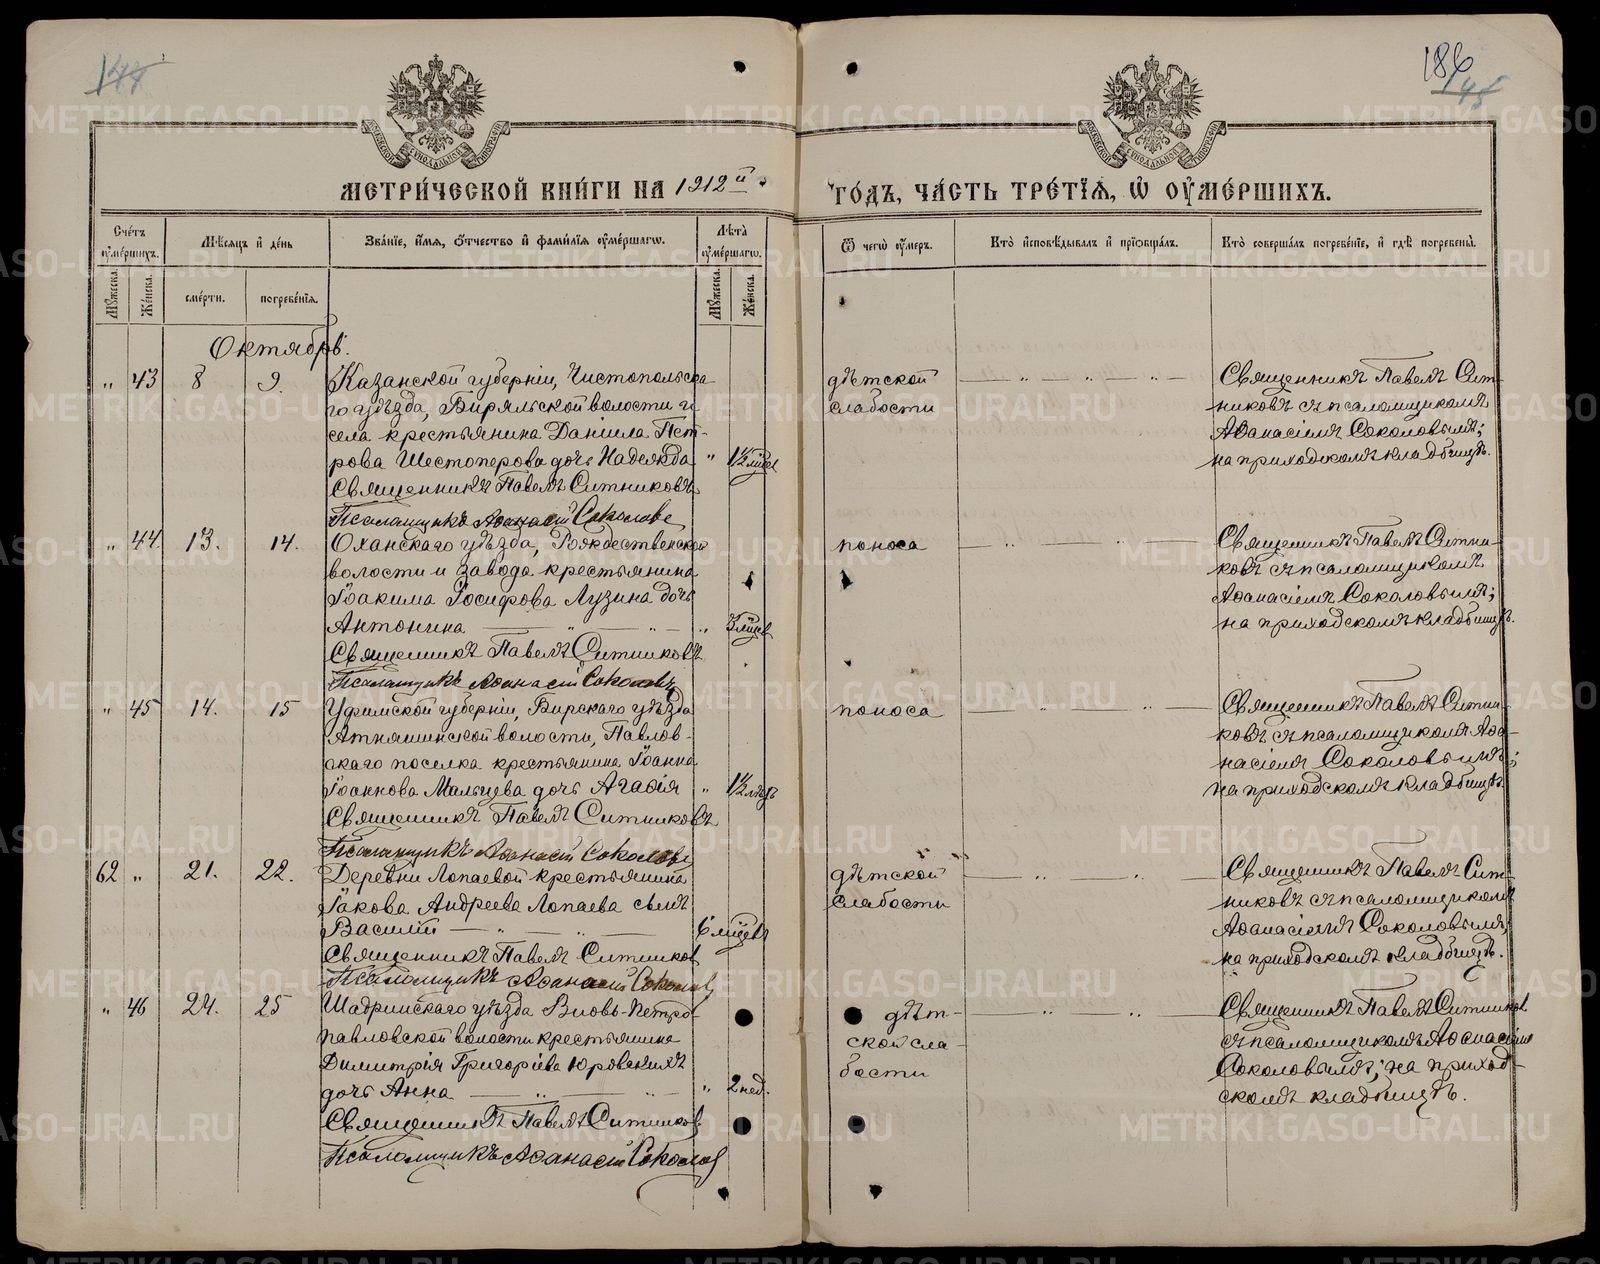 144
186
145
МЕТРИ́ЧЕСКОЙ КНИ́ГИ НА 1912й
ГО́ДЪ, ЧА́СТЬ ТРЕ́ТЇѦ, Ѽ ОУ҆МЕ́РШИХЪ.
Сче́тъ оу҆ме́ршихъ.
Мѣ́сяцъ и҆ де́нь
Зва́нїе, и҆́мѧ, ѻ҆́тчество и҆ фами́лїѧ оу҆ме́ршагѡ.
Лѣ́та оу҆ме́ршагѡ.
Ѿ чегѡ̀ оу҆́меръ.
Кто̀ и҆сповѣ́дывалъ и҆ прїѡбща́лъ.
Кто̀ соверша́лъ погребе́нїе, и҆ гдѣ̀ погребены̀.
Мꙋ́жеска.
Же́нска.
сме́рти.
погребе́нїѧ.
Мꙋ́жеска.
Же́нска.
Октябрь.
" 43 8 9.
Казанской губернiи, Чистопольска-
го уѣзда, волости и
села крестьянина Данiила Пет-
рова Шестоперова дочь Надежда " 1½
Священникъ Павелъ Ситниковъ
Псаломщикъ Аѳанасiй Соколовъ
дѣтской
слабости
— " — " — " —
Священникъ Павелъ Сит-
никовъ съ псаломщикомъ
Аѳанасiемъ Соколовымъ;
на приходскомъ кладбищѣ.
" 44. 13. 14.
Оханскаго уѣзда, Рождественской
волости и завода крестьянина
Iоакима Iосифова Лузина дочь
Антонина — " — " — "
Священникъ Павелъ Ситниковъ
Псаломщикъ Аѳанасiй Соколовъ
поноса
— " — " —
Священникъ Павелъ Ситни-
ковъ съ псаломщикомъ
Аѳанасiемъ Соколовымъ;
на приходскомъ кладбищѣ.
" 45 14. 15
Уфимской губернiи, Бирскаго уѣзда
Атняшинской волости, Павлов-
скаго поселка крестьянина Iоанна
Iоаннова Мальцева дочь Агаѳiя " 1½
Священникъ Павелъ Ситниковъ
Псаломщикъ Аѳанасiй Соколовъ
поноса
— " — " —
Священникъ Павелъ Ситни-
ковъ съ псаломщикомъ Аѳа-
насiемъ Соколовымъ;
на приходскомъ кладбищѣ.
62 " 21. 22.
Деревни Лопаевой крестьянина
Iакова Андреева Лопаева сынъ
Василiй — " — " — 6 мѣсяц.
Священникъ Павелъ Ситников
Псаломщикъ Аѳанасiй Соколовъ
дѣтской
слабости
— " — " —
Священникъ Павелъ Сит-
никовъ съ псаломщикомъ
Аѳанасiемъ Соколовымъ;
на приходскомъ кладбищѣ.
" 46 24. 25
Шадринскаго уѣзда Вновь-Петро-
павловской волости крестьянина
Димитрiя Григорiева Юровскихъ
дочь Анна — " — " — " 2 нед.
Священникъ Павелъ Ситниковъ
Псаломщикъ Аѳанасiй Соколовъ
дѣт-
ской сла-
бости
— " — " —
Священникъ Павелъ Ситниковъ
съ псаломщикомъ Аѳанасiемъ
Соколовымъ; на приход-
скомъ кладбищѣ.
METRIKI.GASO-URAL.RU